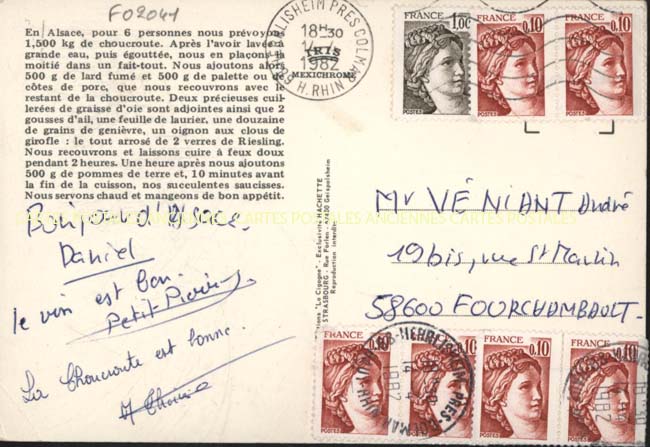 F02041
En Alsace, pour 6 personnes nous prévoyons
1,500 kg de choucroute. Après l'avoir lavée à
grande eau, puis égouttée, nous en plaçons la
moitié dans un fait-tout. Nous ajoutons alors
500 g de lard fumé et 500 g de palette ou de
côtes de porc, que nous recouvrons avec le
restant de la choucroute. Deux précieuses cuil-
lerées de graisse d'oie sont adjointes ainsi que 2
gousses d'ail, une feuille de laurier, une douzaine
de grains de genièvre, un oignon aux clous de
girofle : le tout arrosé de 2 verres de Riesling.
Nous recouvrons et laissons cuire à feux doux
pendant 2 heures. Une heure après nous ajoutons
500 g de pommes de terre et, 10 minutes avant
la fin de la cuisson, nos succulentes saucisses.
Nous servons chaud et mangeons de bon appétit.
Bonjour d'Alsace.
Daniel
le vin est bon.
Petit
La Choucroute est bonne.
PRES COLMAR
18H30
IRIS
1982
MEXICHROME
H. RHIN
Editions "La Cigogne" - Exclusivité HACHETTE
STRASBOURG - Rue Forlen - 67450 Geispolsheim
Reproduction interdite
FRANCE 1,00
FRANCE 0,10
FRANCE 0,10
POSTES
POSTES
POSTES
CARTES POSTALES ANCIENNES CARTES POSTALES
Mr VÉNIANT André
19bis, rue St Martin
58600 FOURCHAMBAULT-
FRANCE 0,10
FRANCE 0,10
FRANCE 0,10
FRANCE 0,10
POSTES
POSTES
POSTES
1982